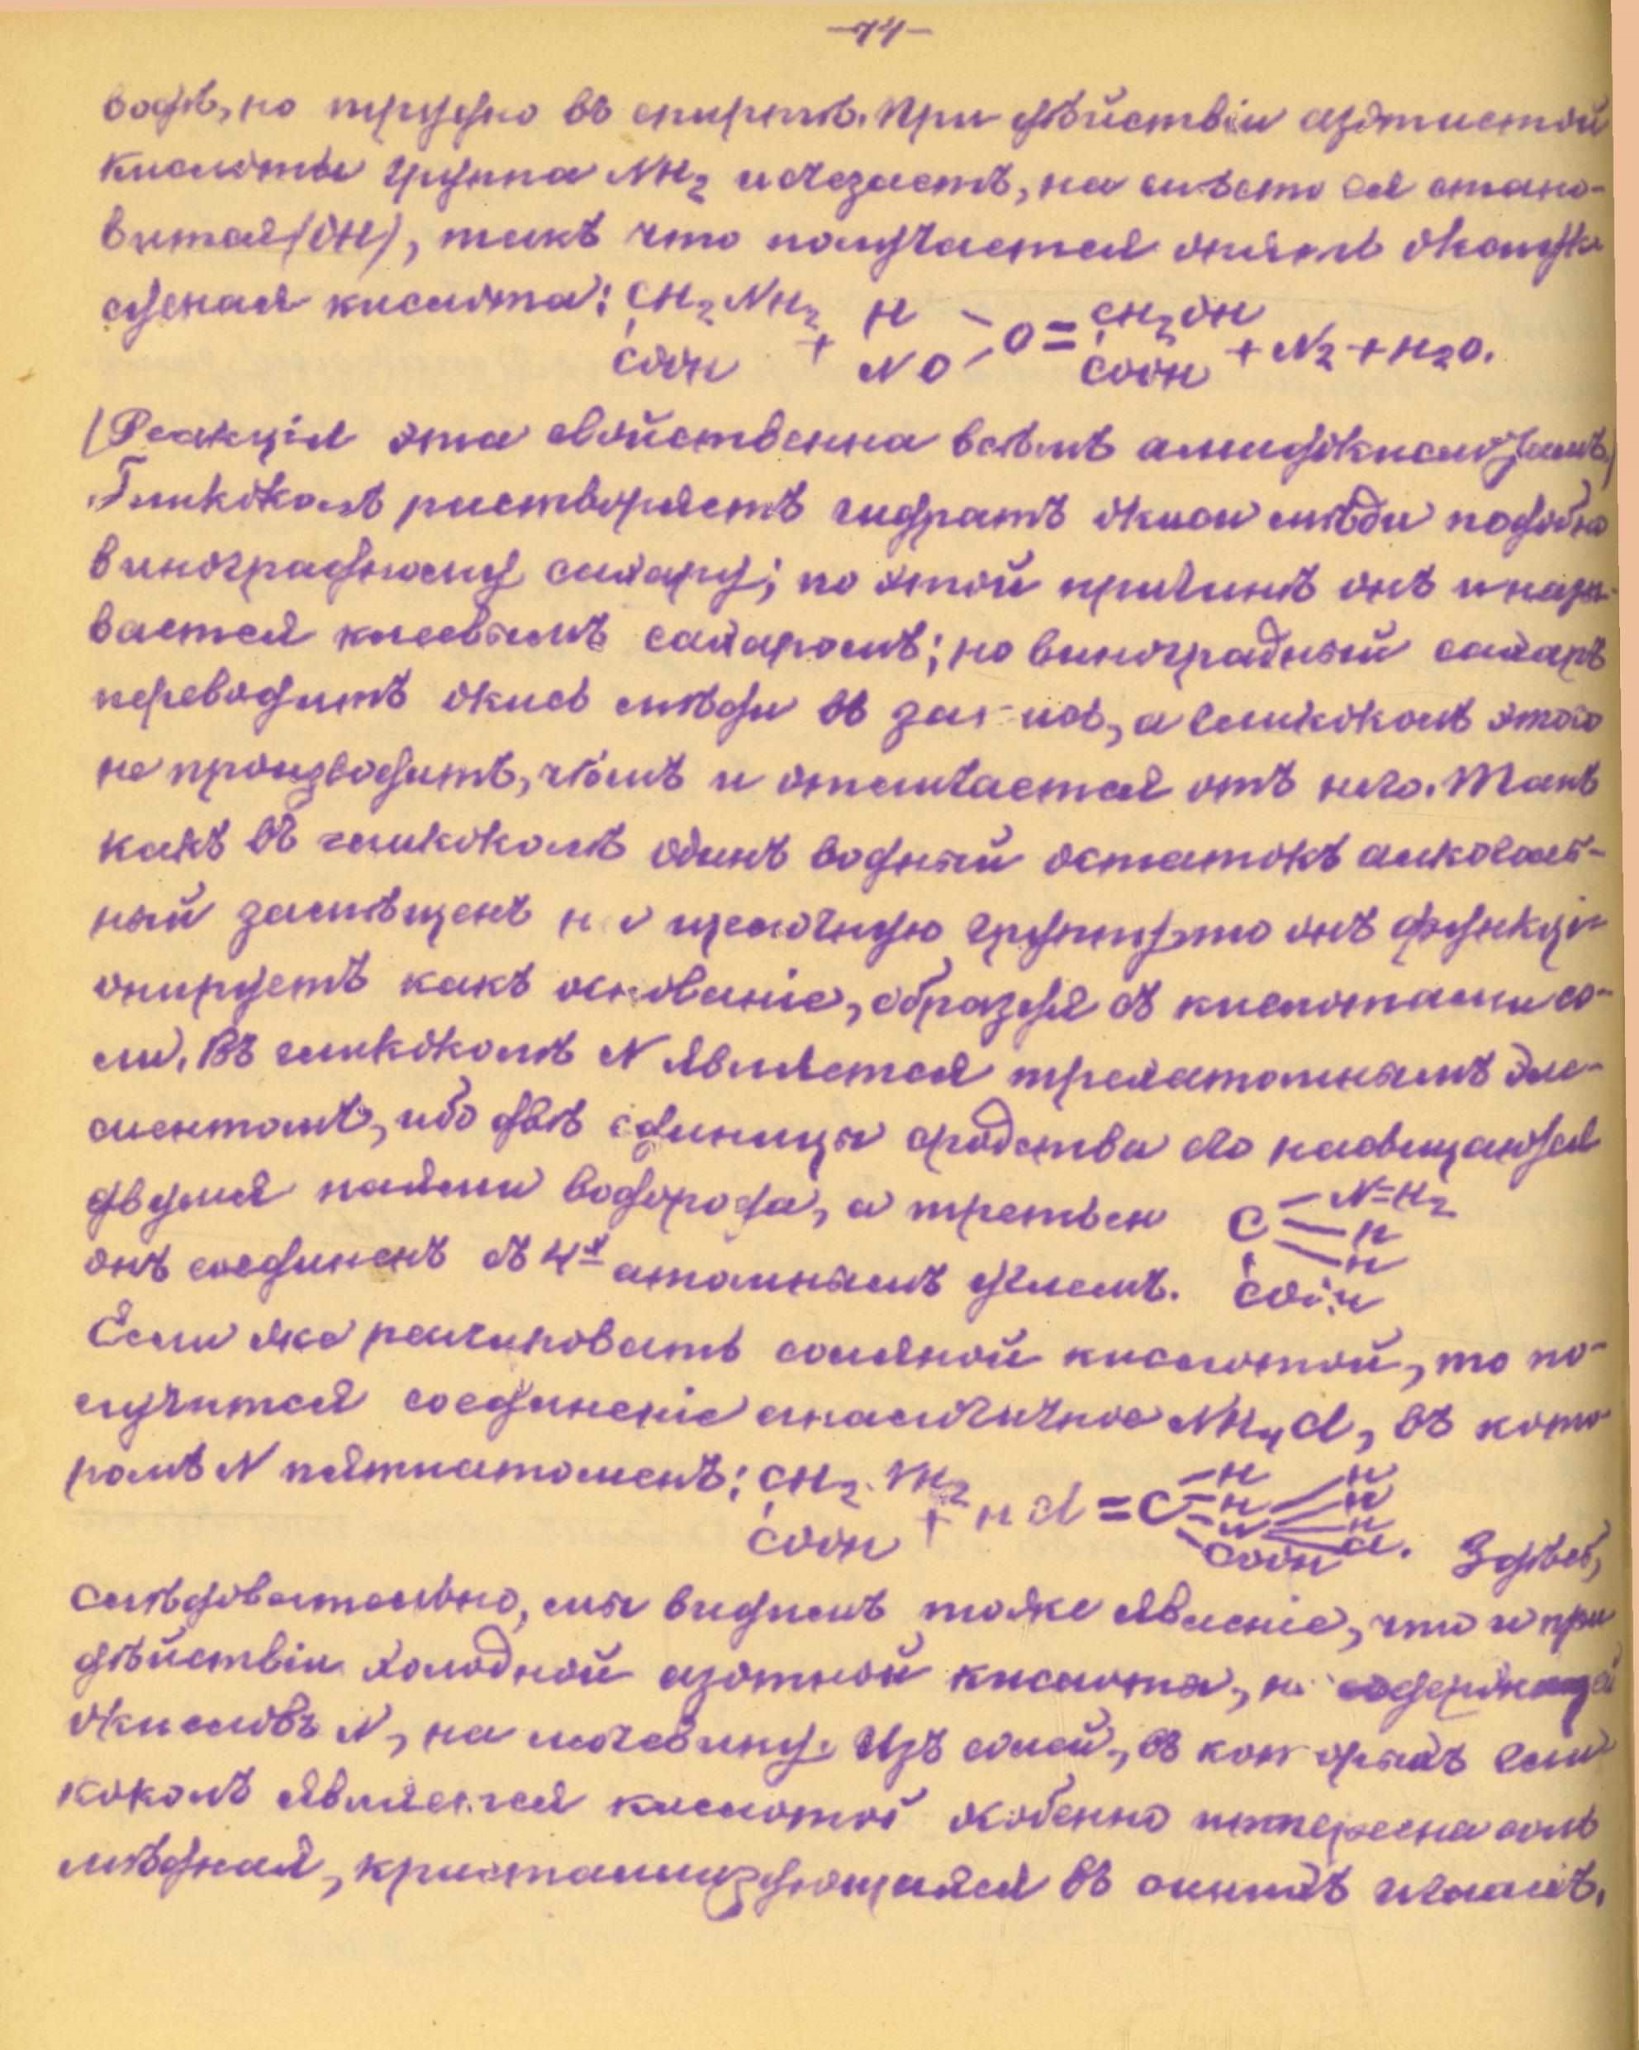 —74—
водѣ, но трудно въ спиртѣ. При дѣйствіи азотистой
кислоты группа NH₂ исчезаетъ, на мѣсто ея стано-
вится (ОН), такъ что получается опять оксиук-
сусная кислота: CH₂NH₂ + H – O = CH₂OH + N₂ + H₂O.
COOH NO COOH
(Реакція эта свойственна всѣмъ амидокислотамъ.)
Гликоколъ растворяетъ гидратъ окиси мѣди подобно
виноградному сахару; по этой причинѣ онъ и назы-
вается клеевымъ сахаромъ; но виноградный сахаръ
переводитъ окись мѣди въ закись, а гликоколъ этого
не производитъ, чѣмъ и отличается отъ него. Такъ
какъ въ гликоколѣ одинъ водный остатокъ алкоголь-
ный замѣщенъ на щелочную группу, то онъ функці-
онируетъ какъ основаніе, образуя съ кислотами со-
ли. Въ гликоколѣ N является трехатомнымъ эле-
ментомъ, ибо двѣ единицы сродства его насыщаются
двумя паями водорода, а третьей C – N=H₂
H
онъ соединенъ съ 4ᵡ атомнымъ углемъ. H
COOH
Если же реагировать соляной кислотой, то по-
лучится соединеніе аналогичное NH₄Cl, въ кото-
ромъ N пятиатоменъ: CH₂.NH₂ + HCl = C H H N H H H Cl. Здѣсь,
COOH COOH
слѣдовательно, мы видимъ тоже явленіе, что и при
дѣйствіи холодной азотной кислоты, не содержащей
окисловъ N, на мочевину. Изъ солей, въ которыхъ гли-
коколъ является кислотой особенно интересна соль
мѣдная, кристаллизующаяся въ синихъ иглахъ.